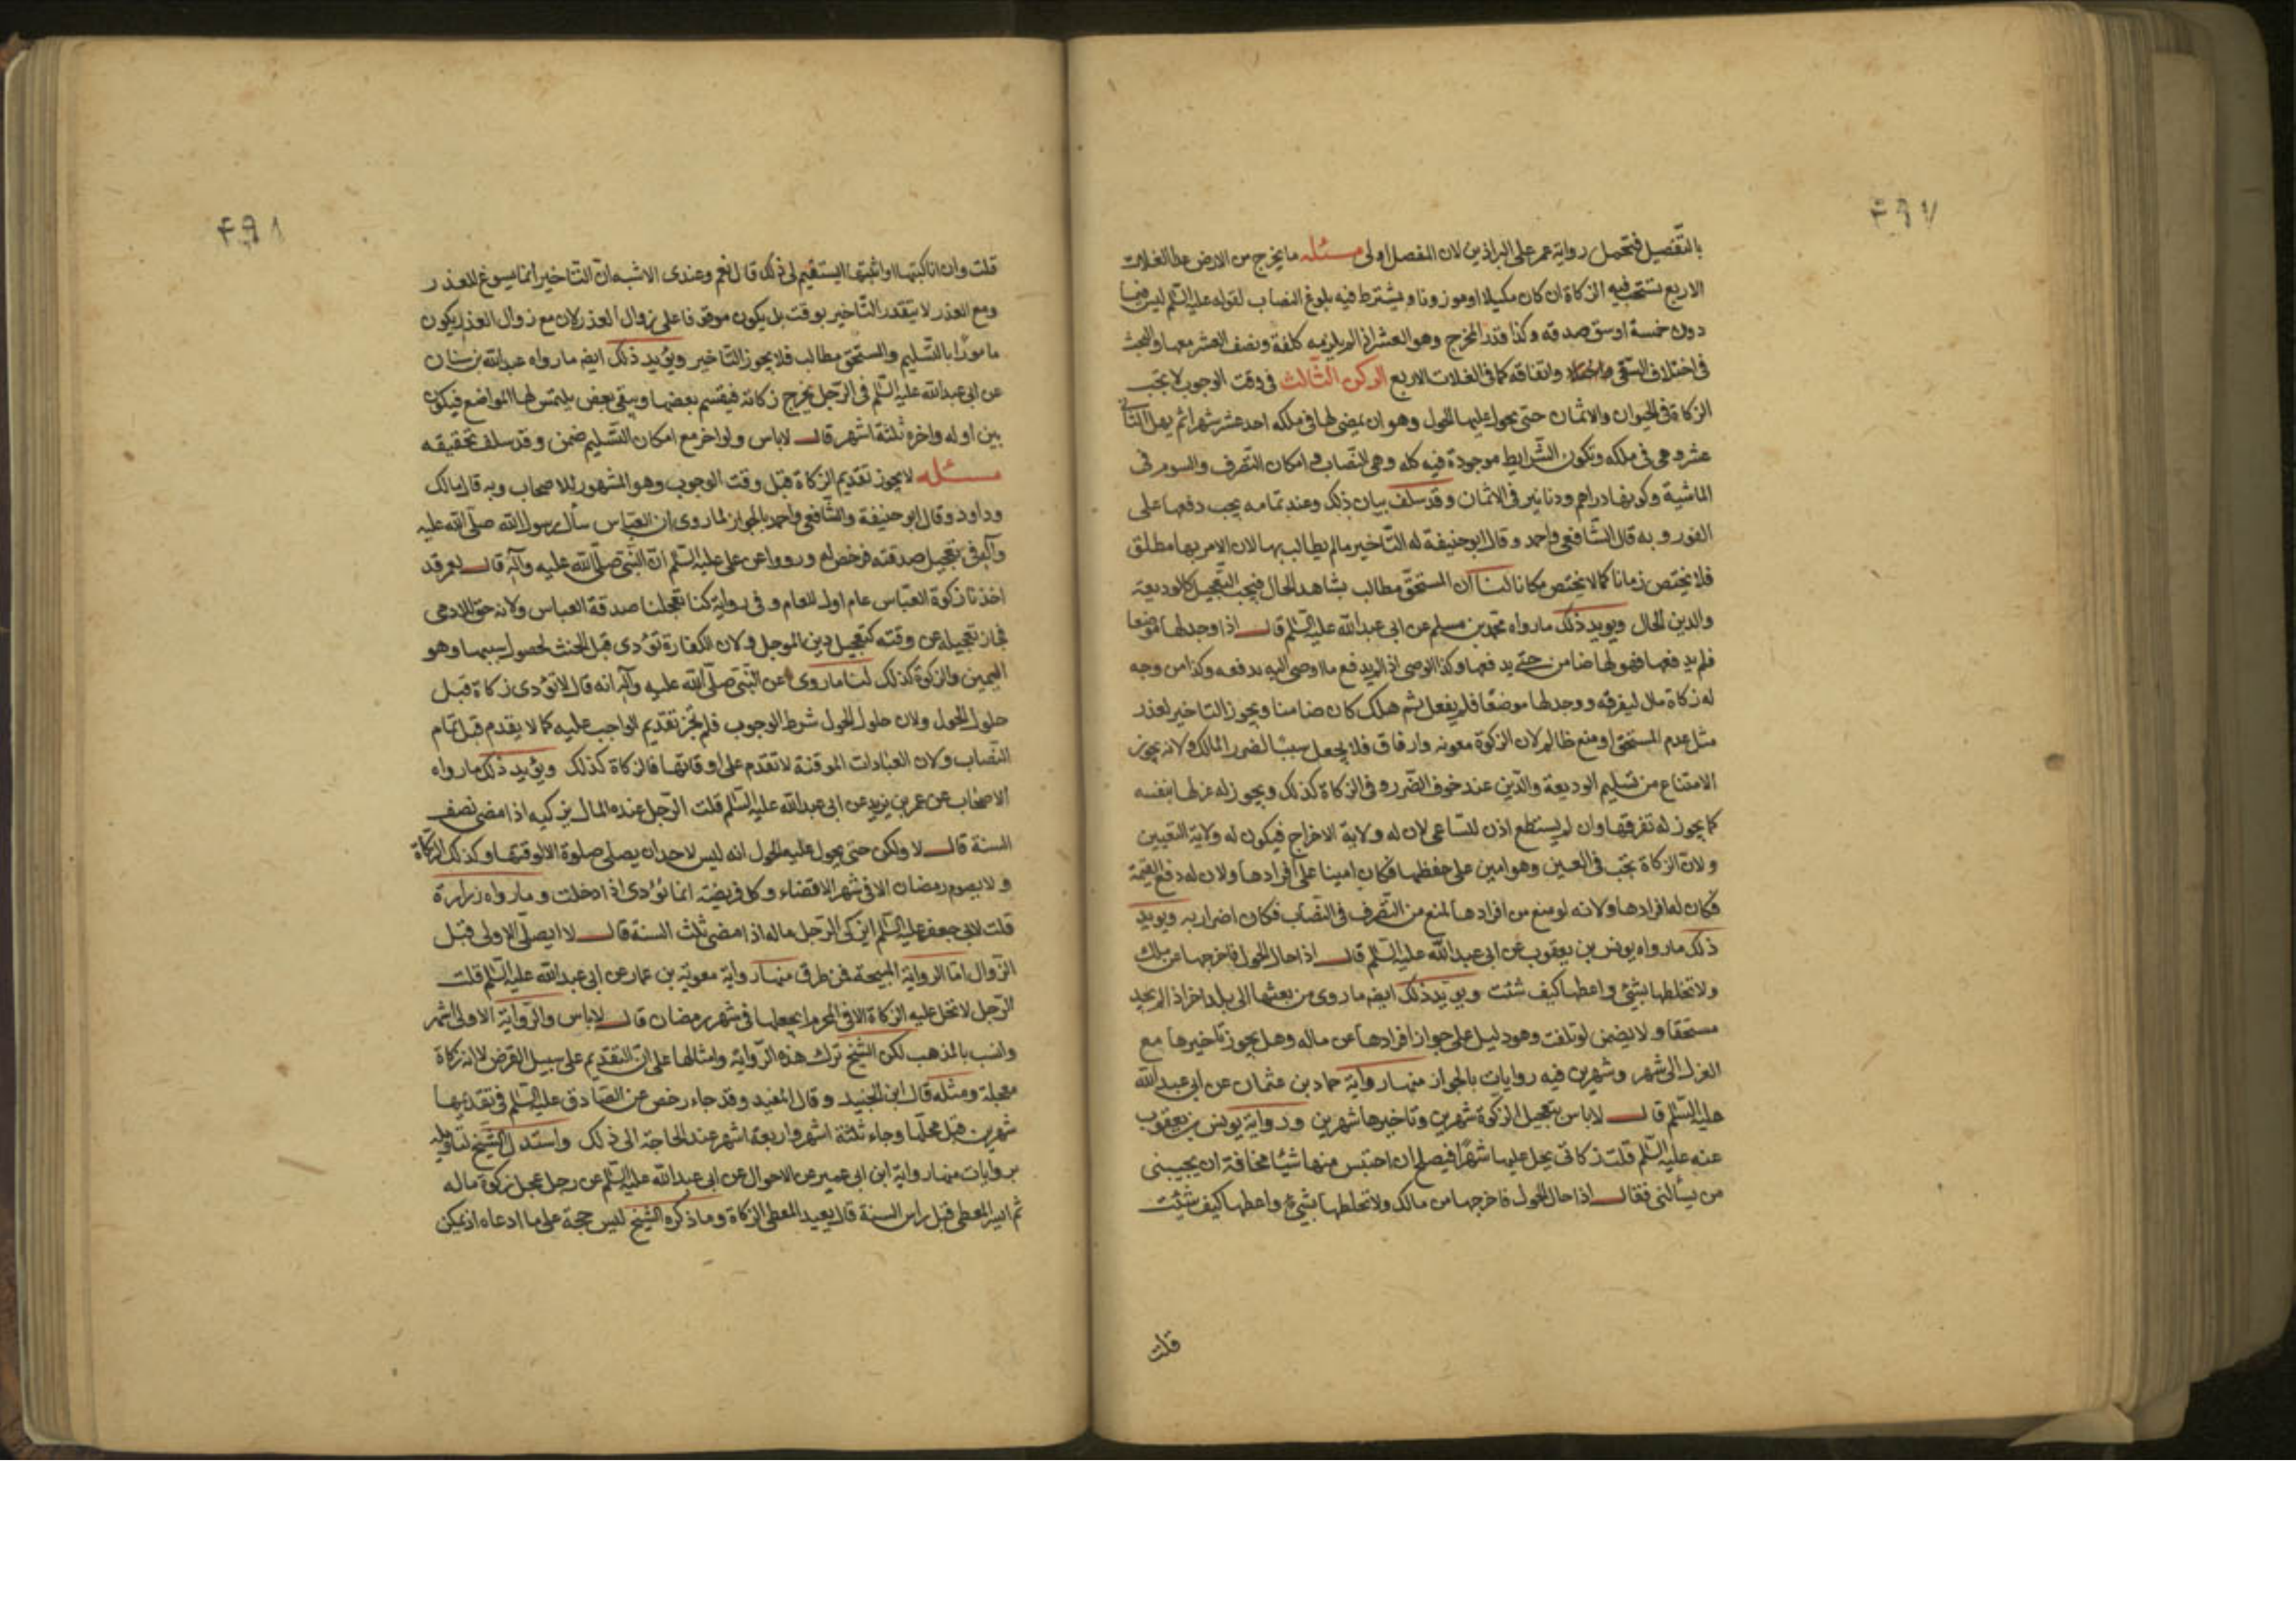 ٤٩٧
بالتّفصيل فتحمل رواية عمر على البراذين لان المفصل اولى مسئله ما يخرج من الارض عدا الغلات
الاربع تستحب فيه الزكاة ان كان مكيلا او موزونا ويشترط فيه بلوغ النصاب لقوله عليه السّلم ليس فيما
دون خمسة اوسق صدقه وكذا قدر المخرج وهو العشر اذا لم يلزمه كلفة ونصف العشر معها والبحث
فى اختلاف السقى واتفاقه كما فى الغلات الاربع الركن الثّالث فى وقت الوجوب لا تجب
الزكاة فى الحيوان والاثمان حتى يحول عليها الحول وهو ان يمضى لها فى ملكه احد عشر شهرا ثم يهل الثانى
عشر وهى فى ملكه وتكون الشّرايط موجودة فيه كله وهى النّصاب وامكان التصرف والسوم فى
الماشية وكونها دراهم ودنانير فى الاثمان وقد سلف بيان ذلك وعند تمامه يجب دفعها على
الفور وبه قال الشّافعى واحمد وقال ابو حنيفة له التّاخير ما لم يطالب بها لان الامر بها مطلق
فلا يختص زمانا كما لا يختص مكانا لنا ان المستحقّ مطالب بشاهد الحال فيجب التّعجيل كالوديعة
والدين الحال ويويد ذلك ما رواه محمّد بن مسلم عن ابى عبد الله عليه السّلم قال اذا وجد لها موضعا
فلم يدفعها فهو لها ضامن حتّى يدفعها وكذا الوصى اذا لم يدفع ما اوصى اليه بدفعه وكذا من وجه
له زكاة مال ليفرقه ووجد لها موضعًا فلم يفعل ثم هلك كان ضامنا ويجوز التاخير لعذر
مثل عدم المستحق او منع ظالم لان الزكوة معونه وارفاق فلا يجعل سببًا لضرر المالك ولانه يجوز
الامتناع من تسليم الوديعة والدّين عند خوف الضّرر وفى الزكاة كذلك ويجوز له عزلها بنفسه
كما يجوز له تفرقتها وان لم يستطع اذن للسّاعى لان له ولاية الاخراج فيكون له ولاية التعيين
ولانّ الزكاة تجب فى العين وهو امين على حفظها فكان امينا على افرادها ولان له دفع القيمة
فكان له افرادها ولانه لو منع من افرادها لمنع من التّصرف فى النّصاب فكان اضرارا به ويويد
ذلك ما رواه يونس بن يعقوب عن ابى عبد الله عليه السّلم قال اذا حال الحول فاخرجها من ملك
ولا تخلطها بشئ واعطها كيف شئت ويويّد ذلك ايضا ما روى من بعثها الى بلد اخر اذا لم يجد
مستحقا ولا يضمن لو تلفت وهو دليل على جواز افرادها عن ماله وهل يجوز تاخيرها مع
العزل الى شهر وشهرين فيه روايات بالجواز منها رواية حماد بن عثمان عن ابى عبد الله
عليه السّلم قال لا باس بتعجيل الزكوة شهرين وتاخيرها شهرين ورواية يونس بن يعقوب
عنه عليه السّلم قلت زكاتى يحل عليها شهرًا فيصلح ان احتبس منها شيئًا مخافة ان يجيبنى
من يسألنى فقال اذا حال الحول فاخرجها من مالك ولا تخلطها بشئ واعطها كيف شئت
قلت
٤٩٨
قلت وان انا كتبتها او اثبتها ايستقيم لى ذلك قال نعم وعندى الاشبه انّ التّاخير انما يسوغ للعذر
ومع العذر لا يتقدر التّاخير بوقت بل يكون موقوفا على زوال العذر لان مع زوال العذر يكون
مامورًا بالتّسليم والمستحق مطالب فلا يجوز التّاخير ويؤيد ذلك ايضا ما رواه عبد الله بن سنان
عن ابى عبد الله عليه السّلم فى الرّجل يخرج زكاته فيقسم بعضها ويبقى بعض يلتمس لها المواضع فيكون
بين اوله واخره ثلثة اشهر قال لا باس ولو اخر مع امكان التّسليم ضمن وقد سلف تحقيقه
مسئله لا يجوز تقديم الزكاة قبل وقت الوجوب وهو المشهور للاصحاب وبه قال مالك
وداود وقال ابو حنيفة والشّافعى واحمد بالجواز لما روى ان العبّاس سأل رسول الله صلّى الله عليه
وآله فى تعجيل صدقته فرخص له ورووا عن على عليه السّلم انّ النّبى صلّى الله عليه وآله قال لعمر قد
اخذنا زكوة العبّاس عام اول للعام وفى رواية كنا تعجلنا صدقة العباس ولانه حق للادمى
فجاز تعجيله عن وقته كتعجيل دين المؤجل ولان الكفارة تؤدى قبل الحنث لحصول سببها وهو
اليمين والزكوة كذلك لنا ما روى عن النّبى صلّى الله عليه وآله انه قال لا تؤدى زكاة قبل
حلول الحول ولان حلول الحول شرط الوجوب فلم يجز تقديم الواجب عليه كما لا يقدم قبل تمام
النّصاب ولان العبادات الموقتة لا تقدم على اوقاتها فالزكاة كذلك ويؤيد ذلك ما رواه
الاصحاب عن عمر بن يزيد عن ابى عبد الله عليه السّلم قلت الرّجل عنده المال يزكيه اذا مضى نصف
السنة قال لا ولكن حتى يحول عليه الحول انه ليس لاحد ان يصلى صلوة الا لوقتها وكذلك الزّكاة
ولا يصوم رمضان الا فى شهره الا قضاء وكل فريضة انما تؤدى اذا دخلت وما رواه زرارة
قلت لابى جعفر عليه السّلم ايزكى الرّجل ماله اذا مضى ثلث السنة قال لا ايصلّى الاولى قبل
الزّوال امّا الرواية المبيحة فمن طرق منها رواية معوية بن عمار عن ابى عبد الله عليه السّلم قلت
الرّجل لا تحل عليه الزكاة الا فى المحرم ايجعلها فى شهر رمضان قال لا باس والرّواية الاولى اشهر
وانسب بالمذهب لكن الشّيخ ترك هذه الرّواية وامثالها على انّ التقديم على سبيل القرض لا انه زكاة
معجلة ومثله قال ابن الجنيد وقال المفيد وقد جاء رخص عن الصّادق عليه السّلم فى تقديمها
شهرين قبل محلّها وجاء ثلثة اشهر واربعة اشهر عند الحاجة الى ذلك واستدل الشّيخ لتاويله
بروايات منها رواية ابن ابى عمير عن الاحوال عن ابى عبد الله عليه السّلم عن رجل عجل زكوة ماله
ثم ايسر المعطى قبل راس السنة قال يعيد المعطى الزكاة وما ذكره الشّيخ ليس حجة على ما ادعاه اذ يمكن